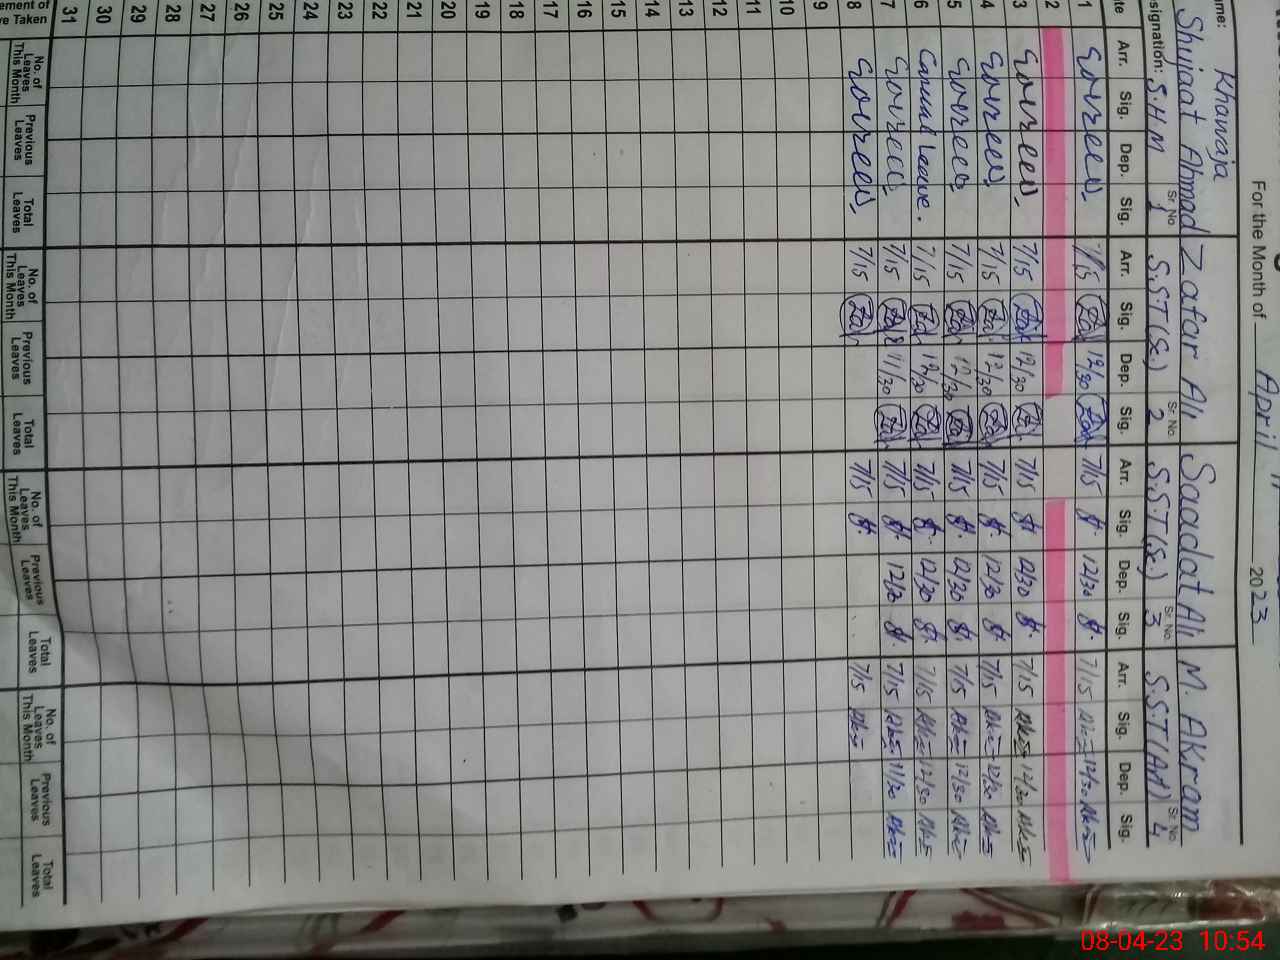 For the Month of April 2023
ame: Khawaja Shujaat Ahmad Zafar Ali Saadat Ali M. AKram
esignation: S.H.M Sr. No. 1 S.S.T (Sc.) Sr. No. 2 S.S.T (Sc.) Sr. No. 3 S.S.T (Art) Sr. No. 4
te Arr. Sig. Dep. Sig. Arr. Sig. Dep. Sig. Arr. Sig. Dep. Sig. Arr. Sig. Dep. Sig.
1 7/15 12/30 7/15 12/30 7/15 12/30
2
3 7/15 12/30 7/15 12/30 7/15 12/30
4 7/15 12/30 7/15 12/30 7/15 12/30
5 7/15 12/30 7/15 12/30 7/15 12/30
6 Casual Leave. 7/15 12/30 7/15 12/30 7/15 12/30
7 7/15 11/30 7/15 7/15 11/30
8 7/15 7/15 7/15
9
10
11
12
13
14
15
16
17
18
19
20
21
22
23
24
25
26
27
28
29
30
31
ement of
ve Taken
No. of Leaves This Month Previous Leaves Total Leaves No. of Leaves This Month Previous Leaves Total Leaves No. of Leaves This Month Previous Leaves Total Leaves No. of Leaves This Month Previous Leaves Total Leaves
08-04-23 10:54